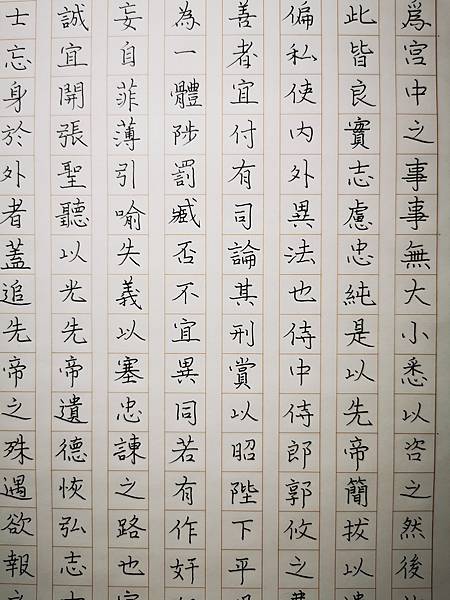 爲宮中之事事無大小悉以咨之然後
此皆良實志慮忠純是以先帝簡拔以
偏私使內外異法也侍中侍郎郭攸之
善者宜付有司論其刑賞以昭陛下平
為一體陟罰臧否不宜異同若有作奸
妄自菲薄引喻失義以塞忠諫之路也
誠宜開張聖聽以光先帝遺德恢弘志
士忘身於外者蓋追先帝之殊遇欲報